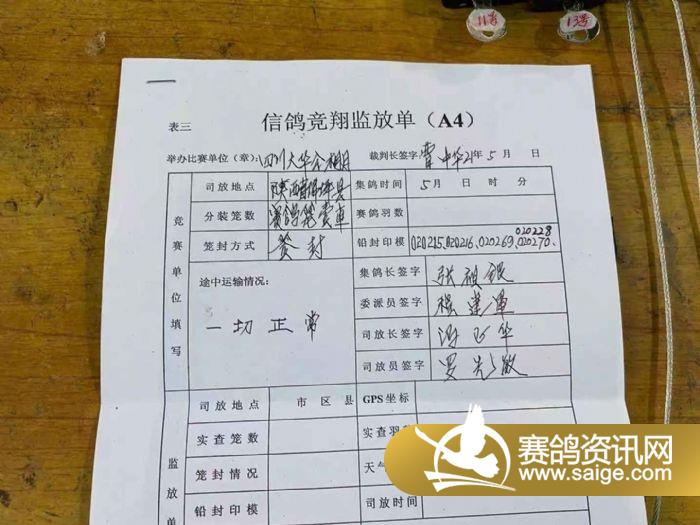 11号
13号
表三
信鸽竞翔监放单（A4）
举办比赛单位（章）：四川大华公棚
裁判长签字：曾中华21年5月 日
竞赛单位填写
司放地点 陕西省佛坪县 集鸽时间 5月 日 时 分
分装笼数 赛鸽笼壹車 赛鸽羽数
笼封方式 签封 铅封印模 020215、020216、020269、020270、
020228
途中运输情况：
一切正常
集鸽长签字 张祖银
委派员签字
司放长签字
司放员签字 罗光敏
监放单
司放地点 市区县 GPS坐标
实查笼数 实查羽
笼封情况 天气
铅封印模 司放时间
赛鸽资讯网
www.saige.com